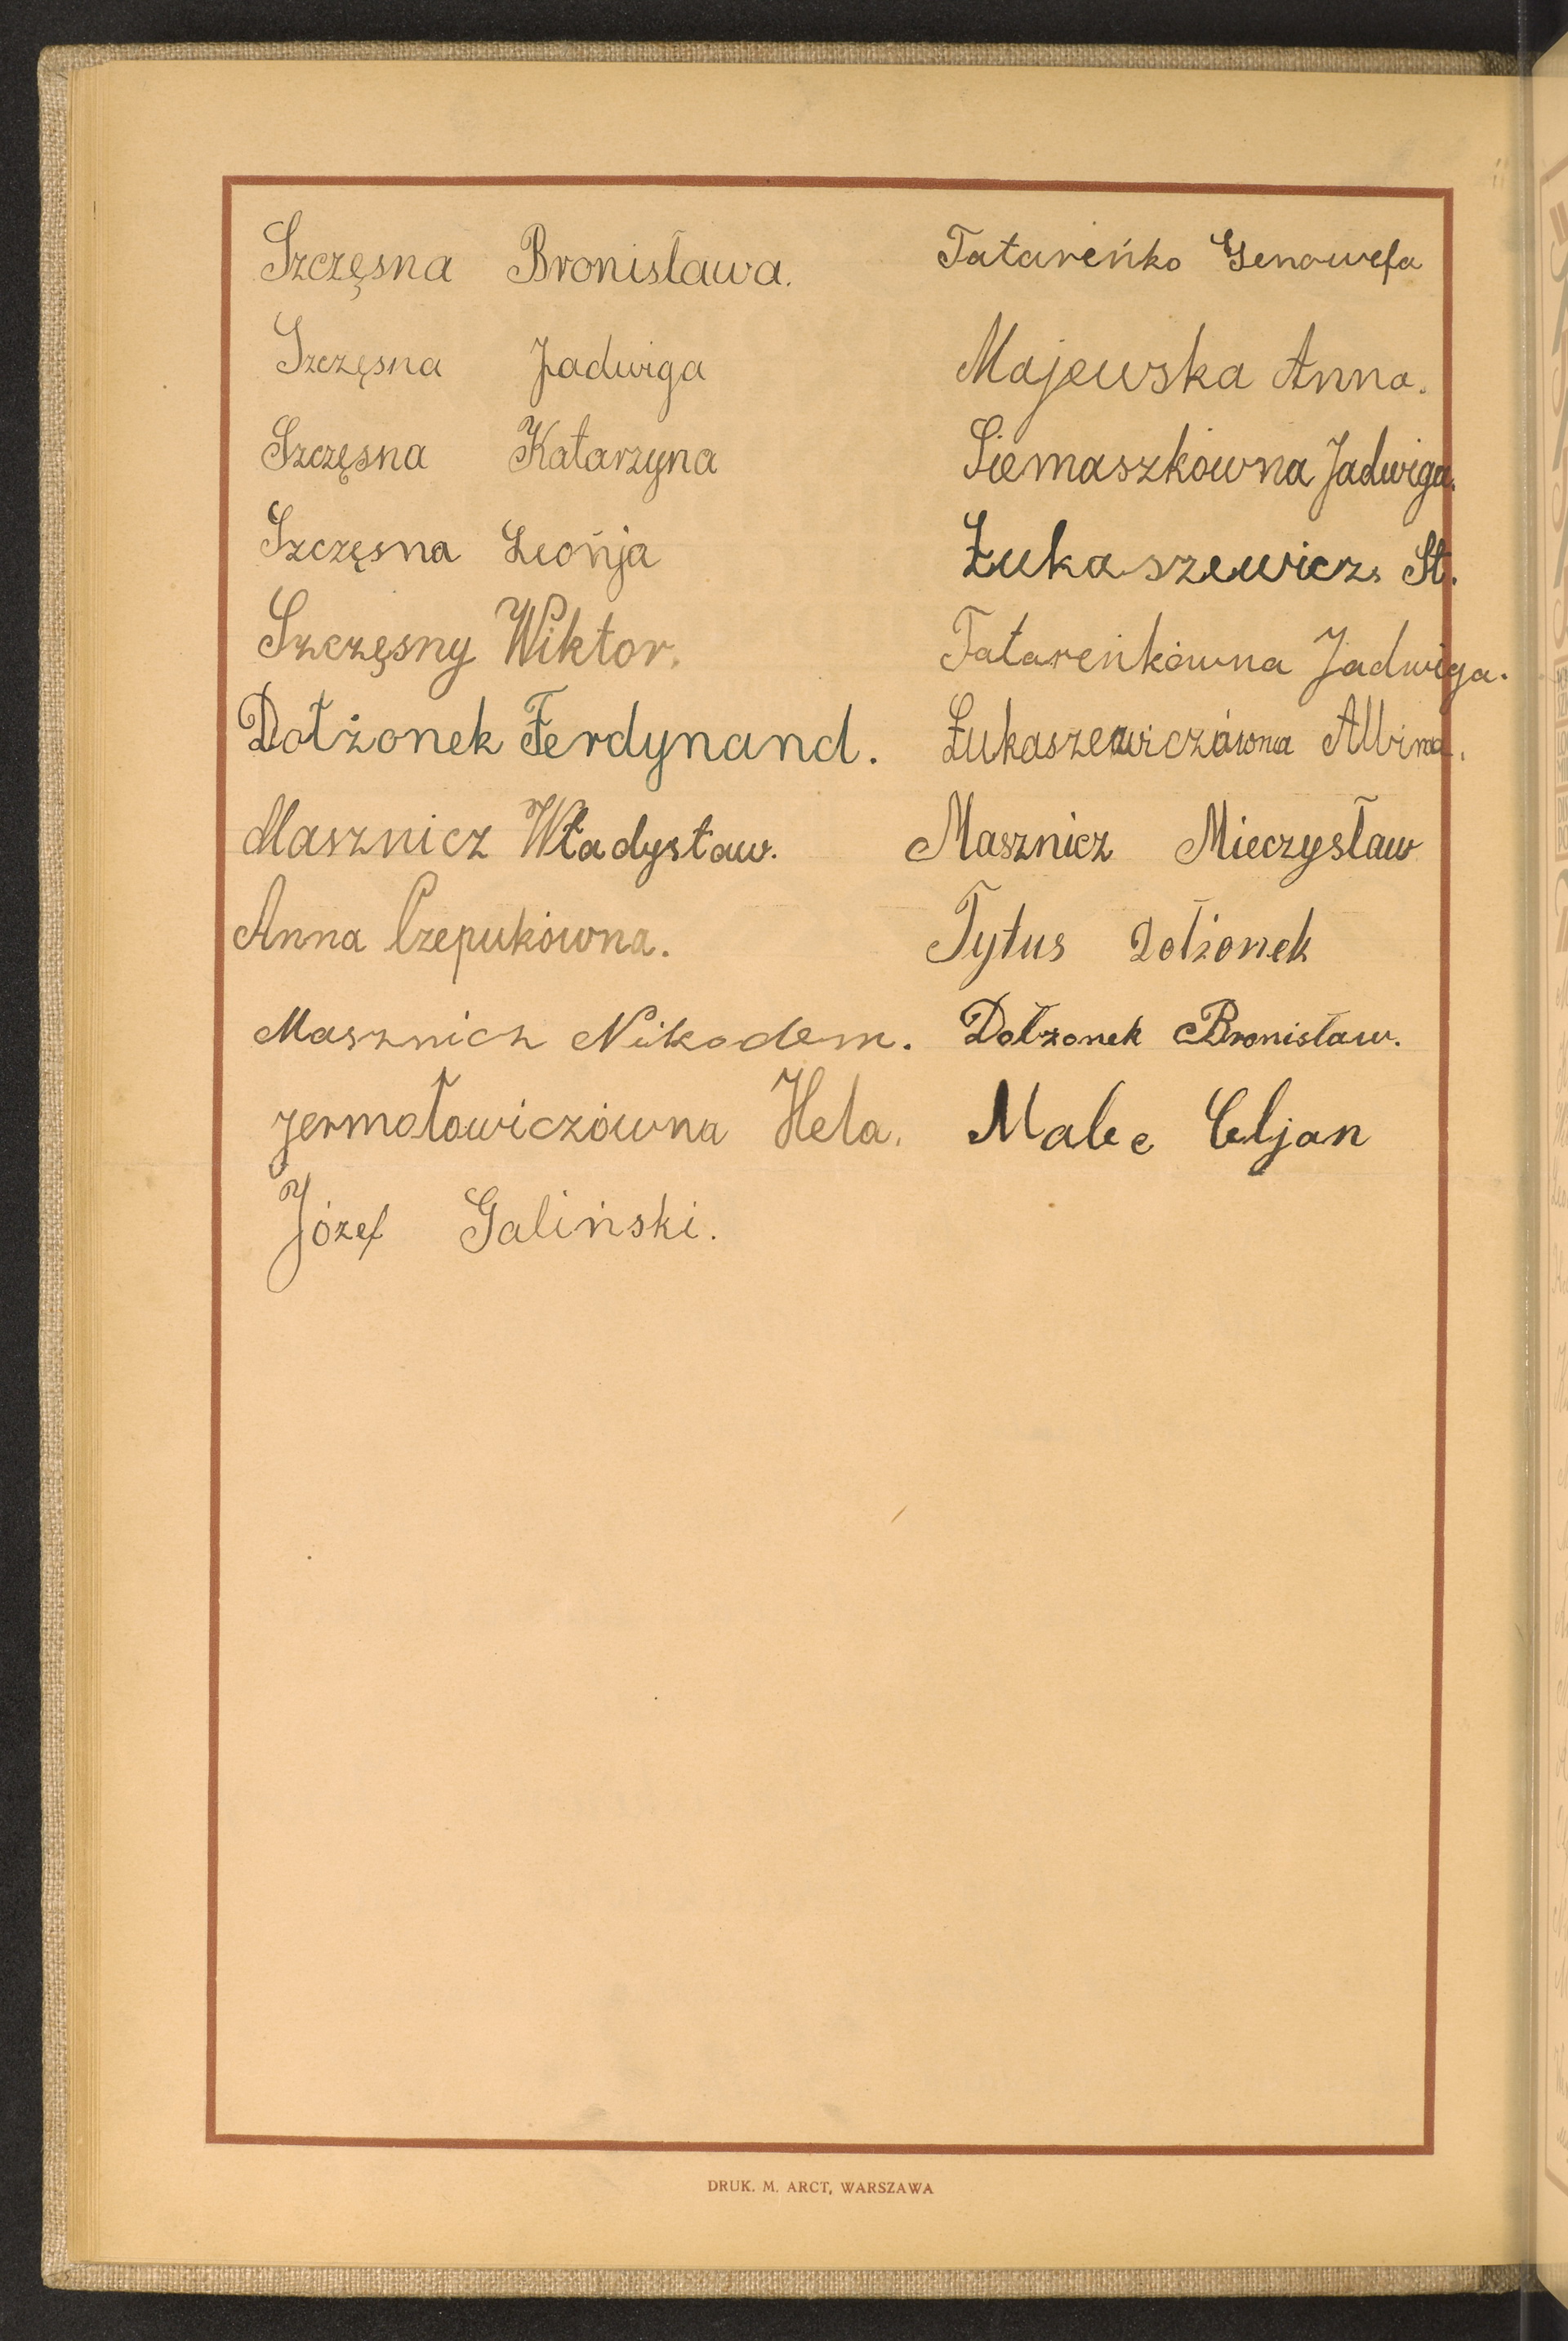 Szczęsna Bronisława.
Szczęsna Jadwiga
Szczęsna Katarzyna
Szczęsna Leonja
Szczęsny Wiktor.
Dołżonek Ferdynand.
Masznicz Władysław.
Anna Czepukówna.
Masznicz Nikodem.
Jermołowiczówna Hela.
Józef Galiński.
Tatareńko Genowefa
Majewska Anna.
Siemaszkówna Jadwiga.
Łukaszewicz St.
Tatareńkówna Jadwiga.
Łukaszewiczówna Albina.
Masznicz Mieczysław
Tytus Dołżonek
Dołżonek Bronisław.
Malec Celjan
DRUK. M. ARCT, WARSZAWA